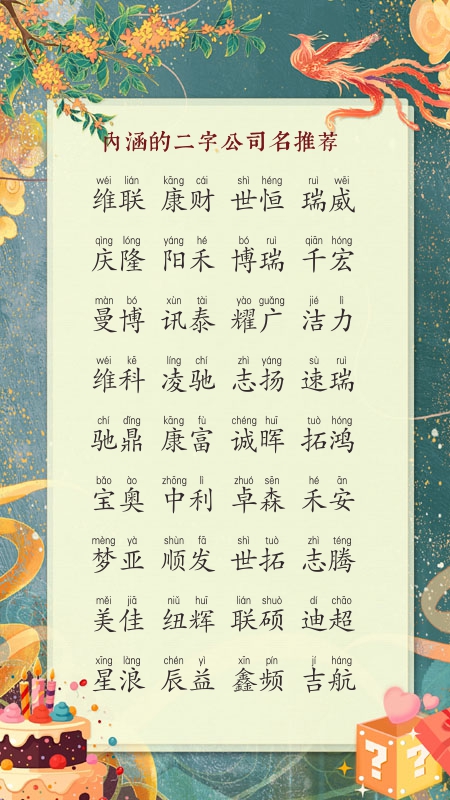 内涵的二字公司名推荐
wéi lián kāng cái shì héng ruì wēi
维联 康财 世恒 瑞威
qìng lóng yáng hé bó ruì qiān hóng
庆隆 阳禾 博瑞 千宏
màn bó xùn tài yào guǎng jié lì
曼博 讯泰 耀广 洁力
wéi kē líng chí zhì yáng sù ruì
维科 凌驰 志扬 速瑞
chí dǐng kāng fù chéng huī tuò hóng
驰鼎 康富 诚晖 拓鸿
bǎo ào zhōng lì zhuó sēn hé ān
宝奥 中利 卓森 禾安
mèng yà shùn fā shì tuò zhì téng
梦亚 顺发 世拓 志腾
měi jiā niǔ huī lián shuò dí chāo
美佳 纽辉 联硕 迪超
xīng làng chén yì xīn pín jí háng
星浪 辰益 鑫频 吉航
? ?